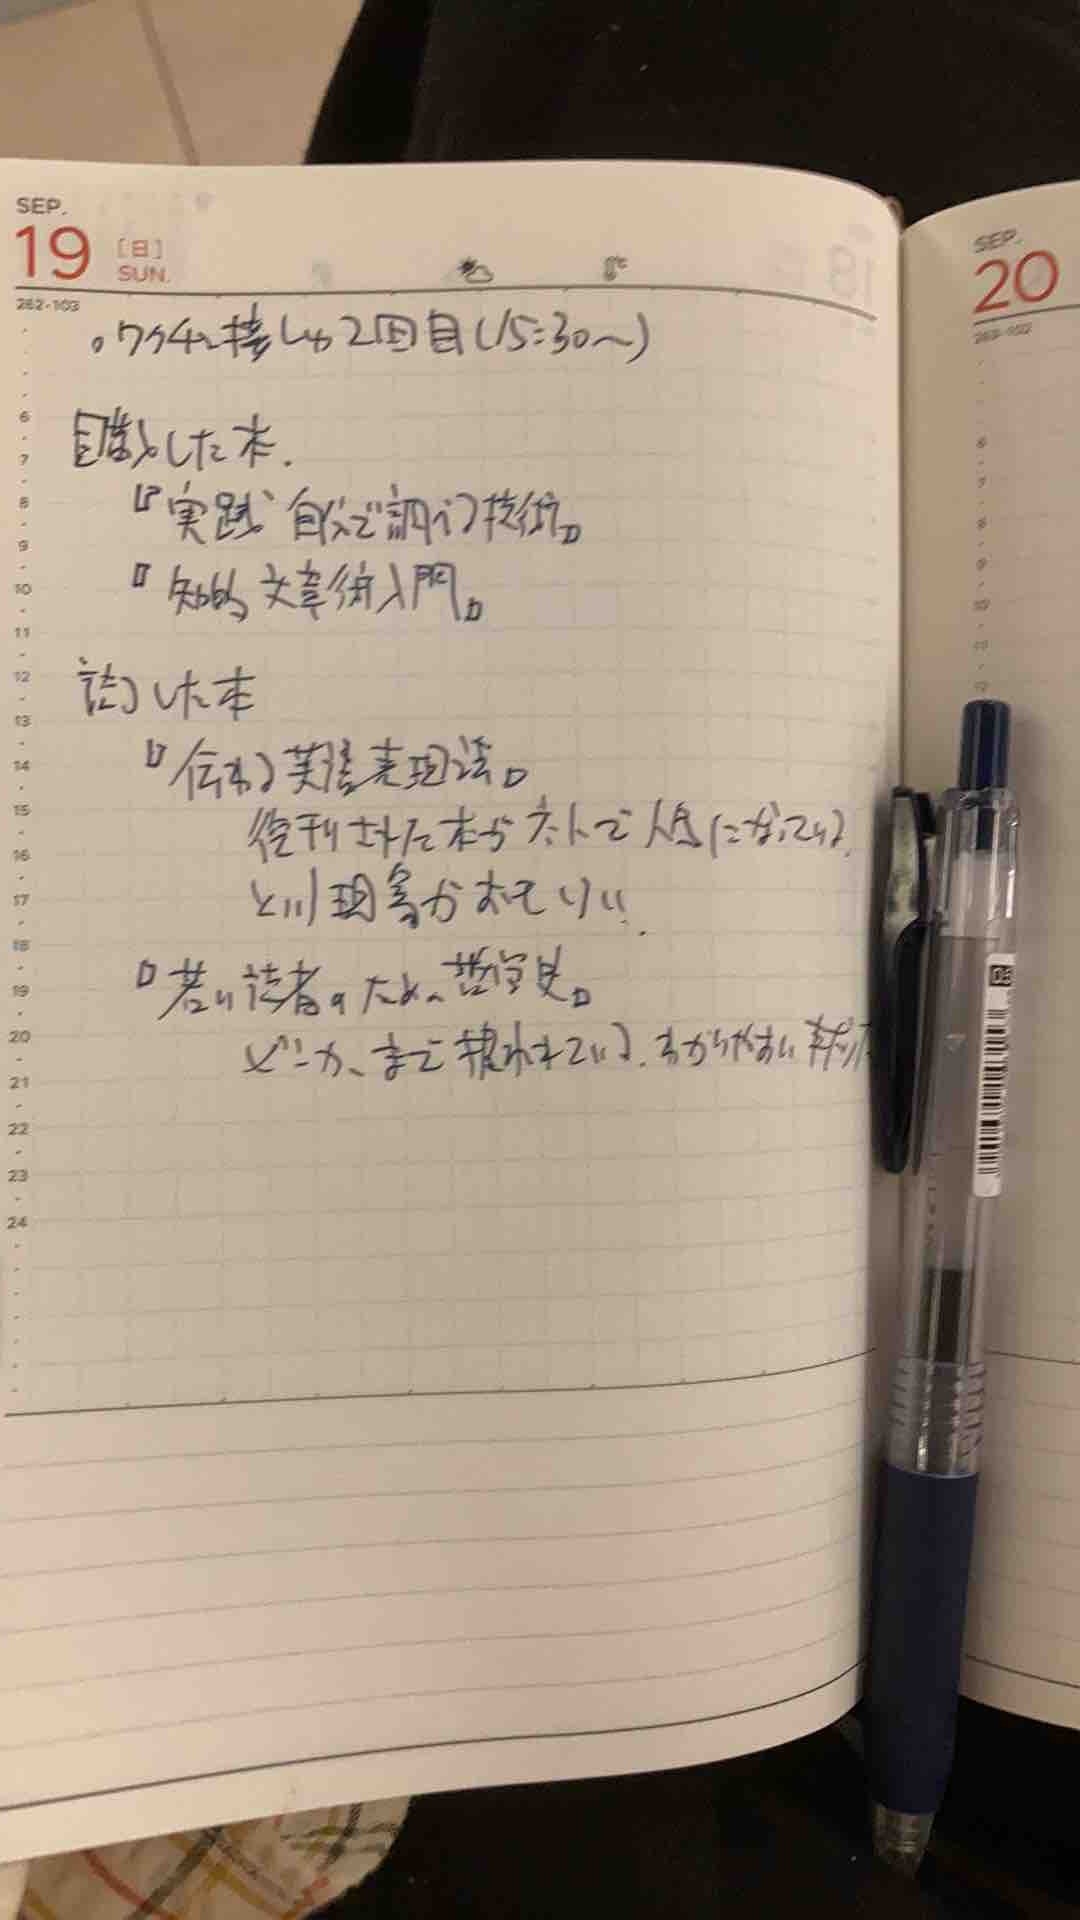 SEP.
19 [日]
SUN.
262-103
。ワクチン接しゅ2回目(15:30〜)
購入した本.
『実践 自分で調べる技術』
『知的文章術入門』
読了した本
『伝わる英語表現法』
復刊された本がネットで人気になっている.
という現象がおもしろい.
『若い読者のための哲学史』
まで描かれている. わかりやすい
6
7
8
9
10
11
12
13
14
15
16
17
18
19
20
21
22
23
24
SEP.
20
6
7
8
9
10
11
12